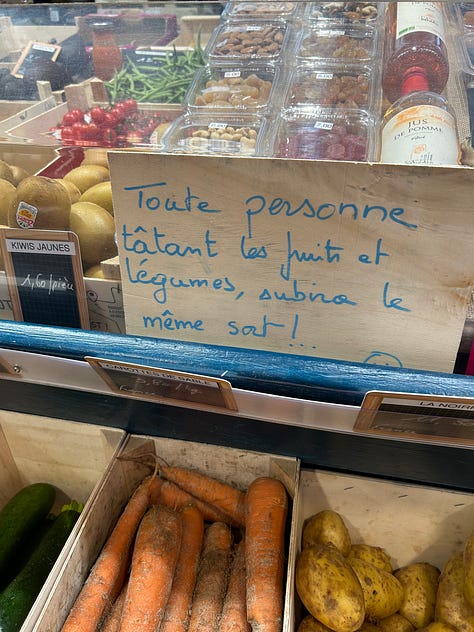 JUS
DE POMME
KIWIS JAUNES
1,60/pièce
Toute personne
tâtant les fruits et
légumes, subira le
même sort !...
CAROTTES DE SABLE
LA NOIRM